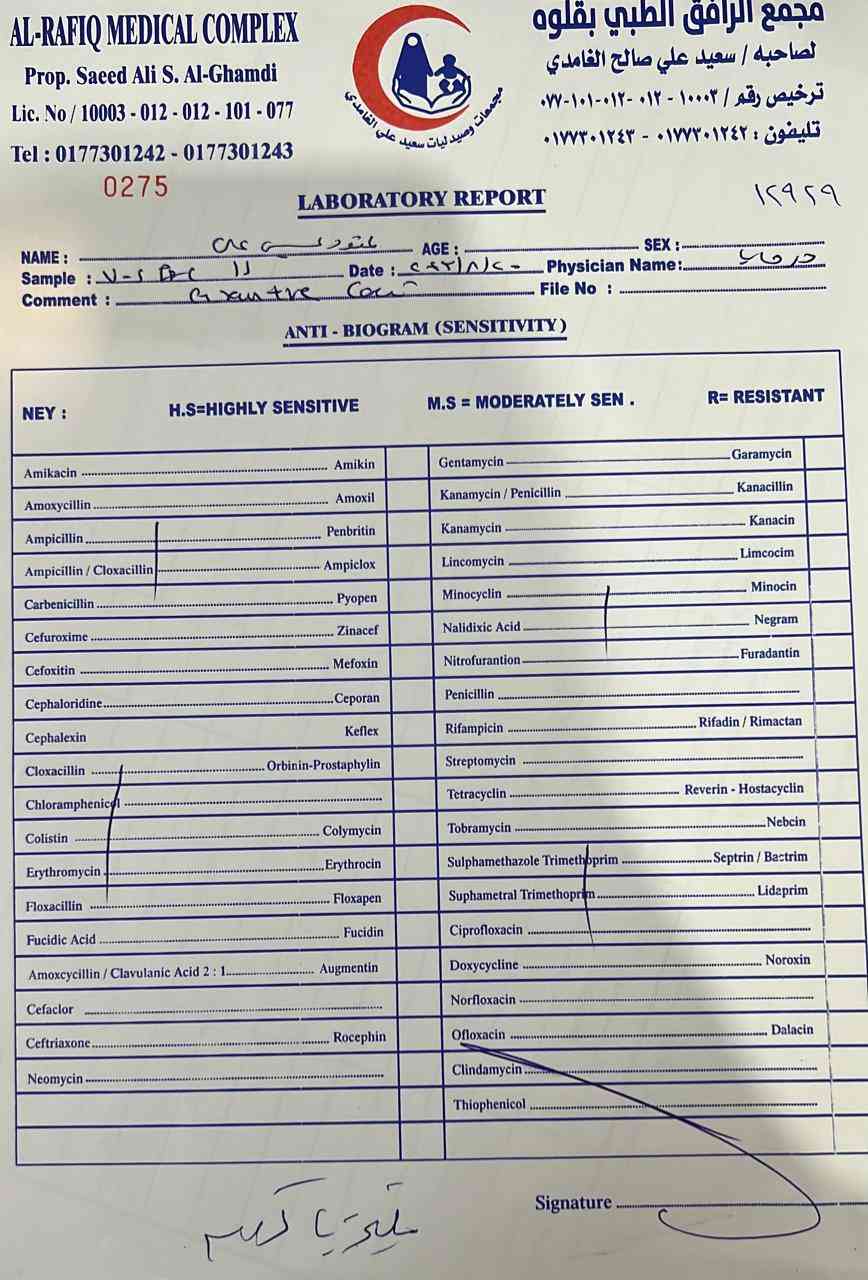 AL-RAFIQ MEDICAL COMPLEX
Prop. Saeed Ali S. Al-Ghamdi
Lic. No / 10003 - 012 - 012 - 101 - 077
Tel : 0177301242 - 0177301243
مجمع الرافق الطبي بقلوه
لصاحبه / سعيد علي صالح الغامدي
ترخيص رقم / ١٠٠٠٣ - ٠١٢ - ٠١٢-١٠١-٠٧٧
تليفون : ٠١٧٧٣٠١٢٤٢ - ٠١٧٧٣٠١٢٤٣
مجمعات وصيدليات سعيد علي الغامدي
0275
LABORATORY REPORT
١٢٩٢٩
NAME : AGE : SEX :
Sample : Date : Physician Name:
Comment : File No :
ANTI - BIOGRAM (SENSITIVITY)
NEY : H.S=HIGHLY SENSITIVE M.S = MODERATELY SEN . R= RESISTANT
Amikacin Amikin
Amoxycillin Amoxil
Ampicillin Penbritin
Ampicillin / Cloxacillin Ampiclox
Carbenicillin Pyopen
Cefuroxime Zinacef
Cefoxitin Mefoxin
Cephaloridine Ceporan
Cephalexin Keflex
Cloxacillin Orbinin-Prostaphylin
Chloramphenicol
Colistin Colymycin
Erythromycin Erythrocin
Floxacillin Floxapen
Fucidic Acid Fucidin
Amoxcycillin / Clavulanic Acid 2 : 1 Augmentin
Cefaclor
Ceftriaxone Rocephin
Neomycin
Gentamycin Garamycin
Kanamycin / Penicillin Kanacillin
Kanamycin Kanacin
Lincomycin Limcocim
Minocyclin Minocin
Nalidixic Acid Negram
Nitrofurantion Furadantin
Penicillin
Rifampicin Rifadin / Rimactan
Streptomycin
Tetracyclin Reverin - Hostacyclin
Tobramycin Nebcin
Sulphamethazole Trimethoprim Septrin / Bactrim
Suphametral Trimethoprim Lidaprim
Ciprofloxacin
Doxycycline Noroxin
Norfloxacin
Ofloxacin Dalacin
Clindamycin
Thiophenicol
Signature